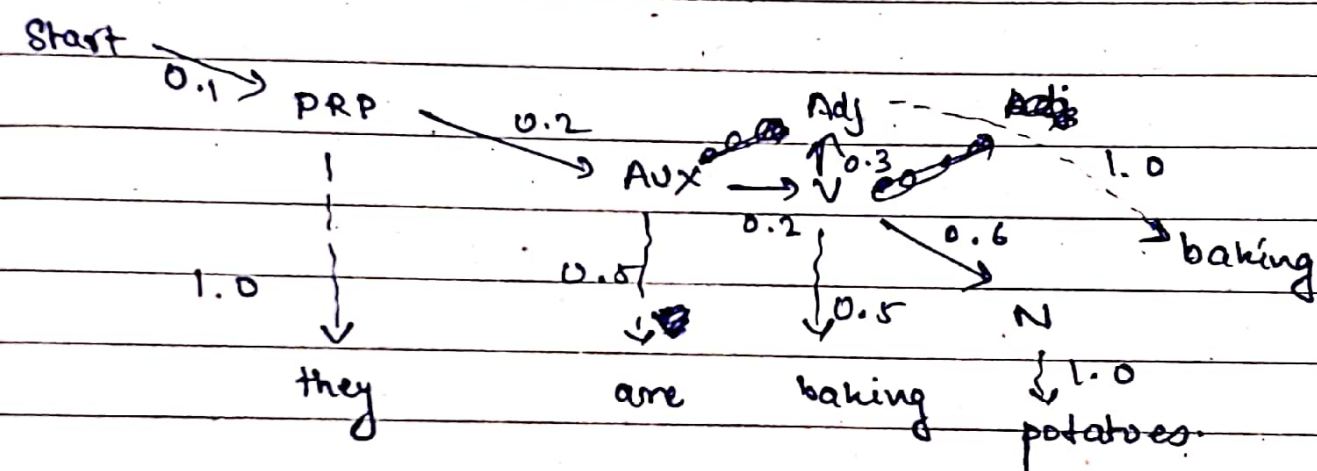 Start
0.1
PRP 0.2 Adj
AUX 0.3 1.0
V
0.2 0.6 baking
1.0 0.5 0.5 N
they are baking 1.0
potatoes.